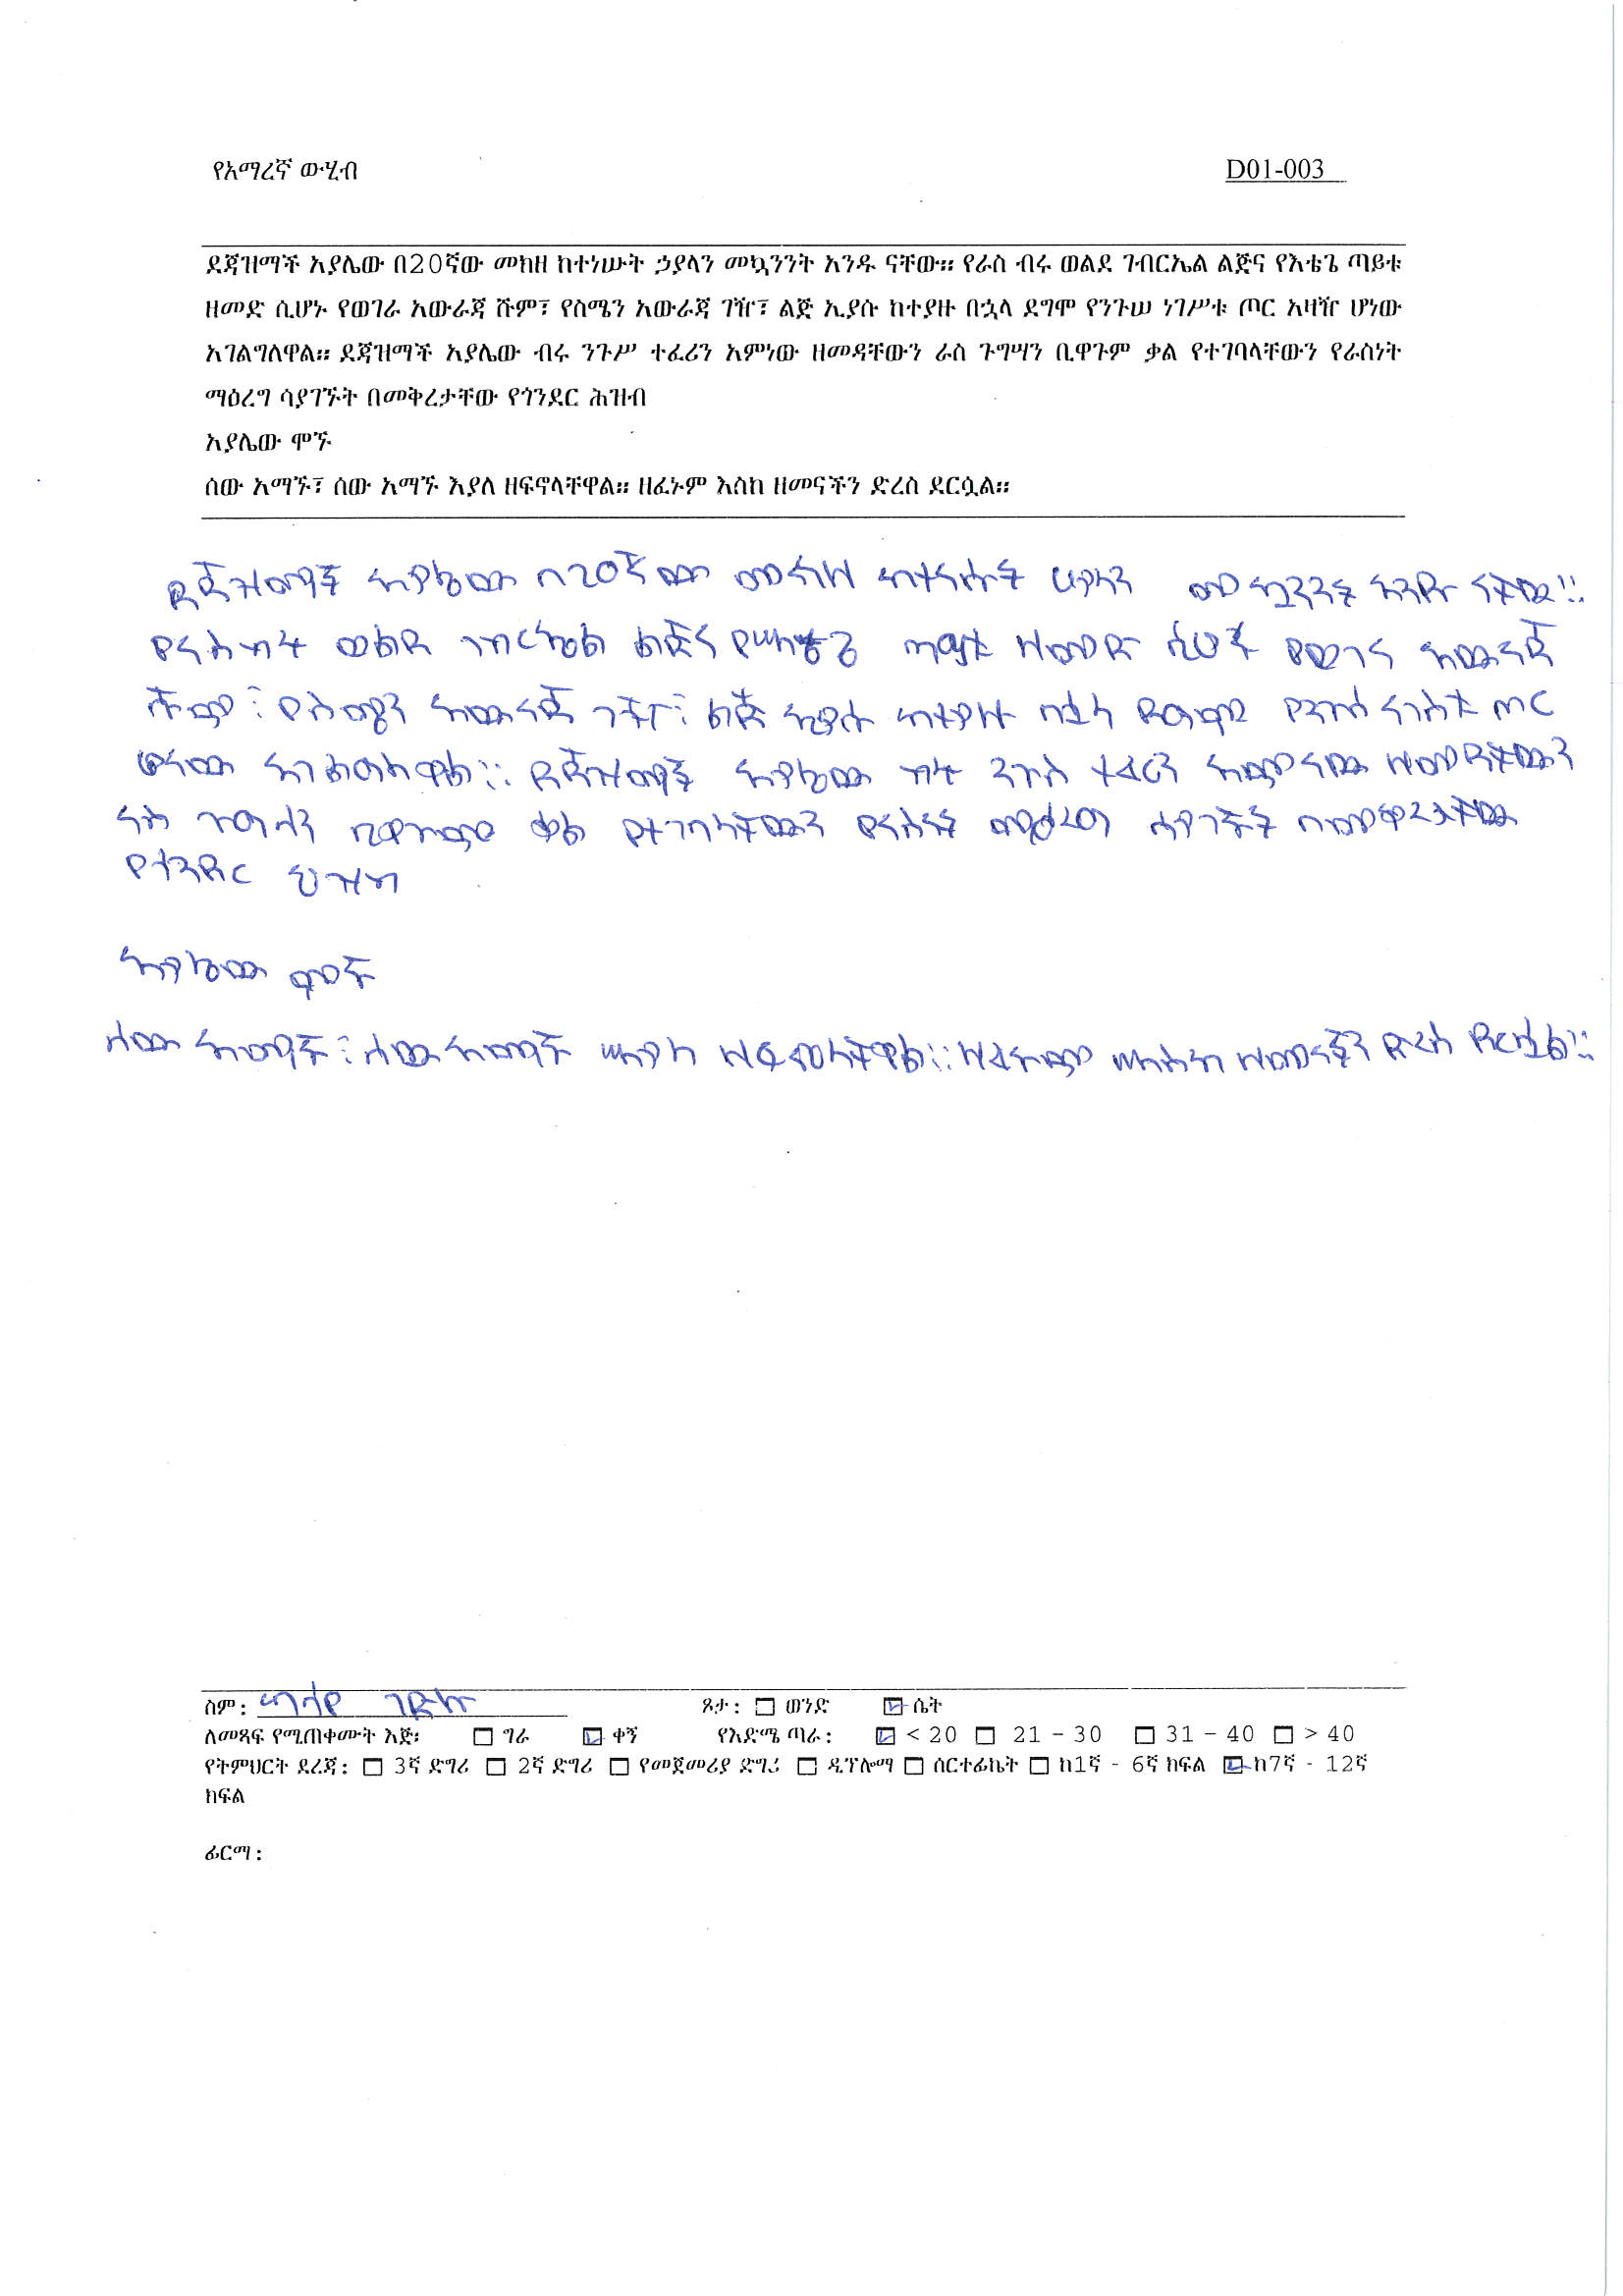 የአማረኛ ውሂብ D01-003
ደጃዝማች አያሌው በ20ኛው መክዘ ከተነሡት ኃያላን መኳንንት አንዱ ናቸው። የራስ ብሩ ወልደ ገብርኤል ልጅና የእቴጌ ጣይቱ
ዘመድ ሲሆኑ የወገራ አውራጃ ሹም፣ የስሜን አውራጃ ገዥ፣ ልጅ ኢያሱ ከተያዙ በኋላ ደግሞ የንጉሠ ነገሥቱ ጦር አዛዥ ሆነው
አገልግለዋል። ደጃዝማች አያሌው ብሩ ንጉሥ ተፈሪን አምነው ዘመዳቸውን ራስ ጉግሣን ቢዋጉም ቃል የተገባላቸውን የራስነት
ማዕረግ ሳያገኙት በመቅረታቸው የጎንደር ሕዝብ
አያሌው ሞኙ
ሰው አማኙ፣ ሰው አማኙ እያለ ዘፍኖላቸዋል። ዘፈኑም እስከ ዘመናችን ድረስ ደርሷል።
ደጃዝማች አያሌው በ20ኛው መክዘ ከተነሱት ሀያላን መኳንንት አንዱ ናቸው።
የራስ ብሩ ወልደ ገብርኤል ልጅና የእቴጌ ጣይቱ ዘመድ ሲሆኑ የወገራ አውራጃ
ሹም፣ የስሜን አውራጃ ገዥ፣ ልጅ ኢያሱ ከተያዙ በኋላ ደግሞ የንጉሰ ነገስቱ ጦር
ሆነው አገልግለዋል። ደጃዝማች አያሌው ብሩ ንጉስ ተፈሪን አምነው ዘመዳቸውን
ራስ ጉግሳን ቢዋጉም ቃል የተገባላቸውን የራስነት ማዕረግ ሳያገኙት በመቅረታቸው
የጎንደር ህዝብ
አያሌው ሞኙ
ሰው አማኙ፣ ሰው አማኙ እያለ ዘፍኖላቸዋል። ዘፈኑም እስከ ዘመናችን ድረስ ደርሷል።
ስም: ጾታ: ወንድ ሴት
ለመጻፍ የሚጠቀሙት እጅ፡ ግራ ቀኝ የእድሜ ጣራ: < 20 21 – 30 31 – 40 > 40
የትምህርት ደረጃ: 3ኛ ድግሪ 2ኛ ድግሪ የመጀመሪያ ድግሪ ዲፕሎማ ሰርተፊኬት ከ1ኛ - 6ኛ ክፍል ከ7ኛ - 12ኛ
ክፍል
ፊርማ: